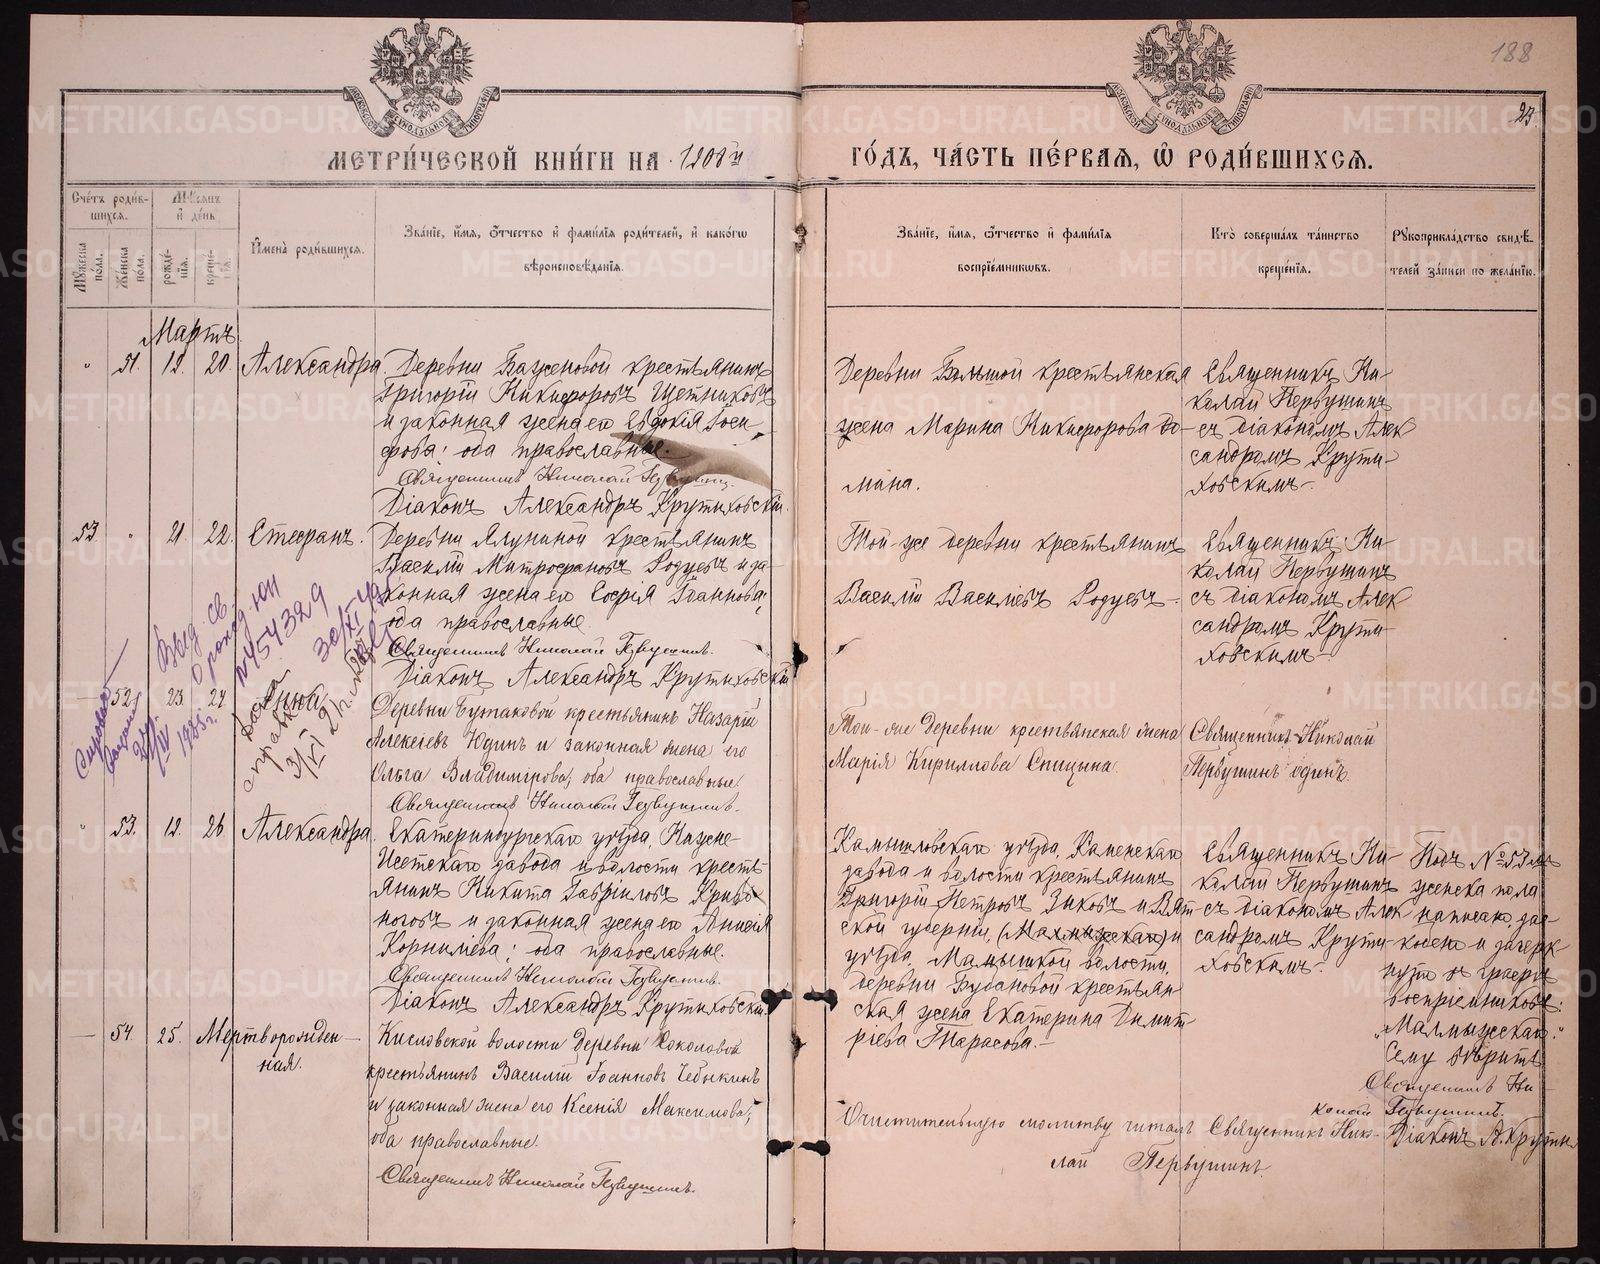 188
23
МОСКОВСКОЙ СѴНОДАЛЬНОЙ ТИПОГРАФІИ
МОСКОВСКОЙ СѴНОДАЛЬНОЙ ТИПОГРАФІИ
МЕТРИ́ЧЕСКОЙ КНИ́ГИ НА 1908й
ГО́ДЪ, ЧА́СТЬ ПЕ́РВАѦ, Ѡ҆ РОДИ́ВШИХСѦ.
Сче́тъ роди́в-
шихсѧ.
Мꙋ́жеска по́ла.
Же́нска по́ла.
Мѣ́сѧцъ
и҆ де́нь
рожде́-
нїѧ.
креще́-
нїѧ.
И҆мена̀ роди́вшихсѧ.
Зва́нїе, и҆́мѧ, ѻ҆́тчество и҆ фами́лїѧ роди́телей, и҆ како́гѡ
вѣроисповѣ́данїѧ.
Зва́нїе, и҆́мѧ, ѻ҆́тчество и҆ фами́лїѧ
воспрїе́мниковъ.
Кто̀ соверша́лъ та́инство
креще́нїѧ.
Рꙋкоприкла́дство свидѣ́-
телей за́писи по жела́нїю.
Мартъ
" 51. 19. 20. Александра.
Деревни Баженовой крестьянинъ
Григорій Никифоровъ Щетниковъ
и законная жена его Евдокія Іоси-
фова; оба православные.
Священникъ Николай Первушинъ.
Діаконъ Александръ Крутиховскій.
Деревни Большой крестьянская
жена Марина Никифорова До-
мина.
Священникъ Ни-
колай Первушинъ
съ діакономъ Алек
сандромъ Крути-
ховскимъ.
53. " 21. 22. Стефанъ.
Деревни Ялуниной крестьянинъ
Василій Митрофановъ Родуевъ и за-
конная жена его Софія Іоаннова;
оба православные.
Священникъ Николай Первушинъ.
Діаконъ Александръ Крутиховскій
Той-же деревни крестьянинъ
Василій Василіевъ Родуевъ.
Священникъ Ни-
колай Первушинъ
съ діакономъ Алек
сандромъ Крути-
ховскимъ.
Выд. св.
о рожд.
№454329
30/XI-49г.
справка
3/VI
1925г.
— 52. 23. 24 Анна
Деревни Бутаковой крестьянинъ Назарій
Алексіевъ Юдинъ и законная жена его
Ольга Владимірова, оба православные
Священникъ Николай Первушинъ.
Той-же деревни крестьянская жена
Марія Кириллова Спицына.
Священникъ Николай
Первушинъ одинъ.
" 53. 19. 26. Александра.
Екатеринбургскаго уѣзда, Нижне-
Исетскаго завода и волости кресть-
янинъ Никита Гавріиловъ Криво-
ноговъ и законная жена его Анисія
Корниліева; оба православные.
Священникъ Николай Первушинъ.
Діаконъ Александръ Крутиховскій.
Камышловскаго уѣзда, Каменскаго
завода и волости крестьянинъ
Григорій Петровъ Зыковъ и Вят-
ской губерніи, (Малмыжскаго) и
уѣзда, Мамышкой волости,
деревни Будановой крестьян-
ская жена Екатерина Димит-
ріева Тарасова.
Священникъ Ни-
колай Первушинъ
съ діакономъ Алек
сандромъ Крути-
ховскимъ.
Подъ №53мъ
женска пола
написано, зас-
коблено и зачерк-
нуто въ графѣ
воспріемниковъ:
"Малмыжскаго."
Сему вѣрить
Священникъ Ни-
колай Первушинъ.
Діаконъ А. Крутих
— 54. 25. Мертворожден-
ная.
Кисловской волости деревни Соколовой
крестьянинъ Василій Іоанновъ Чебыкинъ
и законная жена его Ксенія Максимова;
оба православные.
Священникъ Николай Первушинъ.
Очистительную молитву читалъ Священникъ Нико-
лай Первушинъ.
METRIKI.GASO-URAL.RU